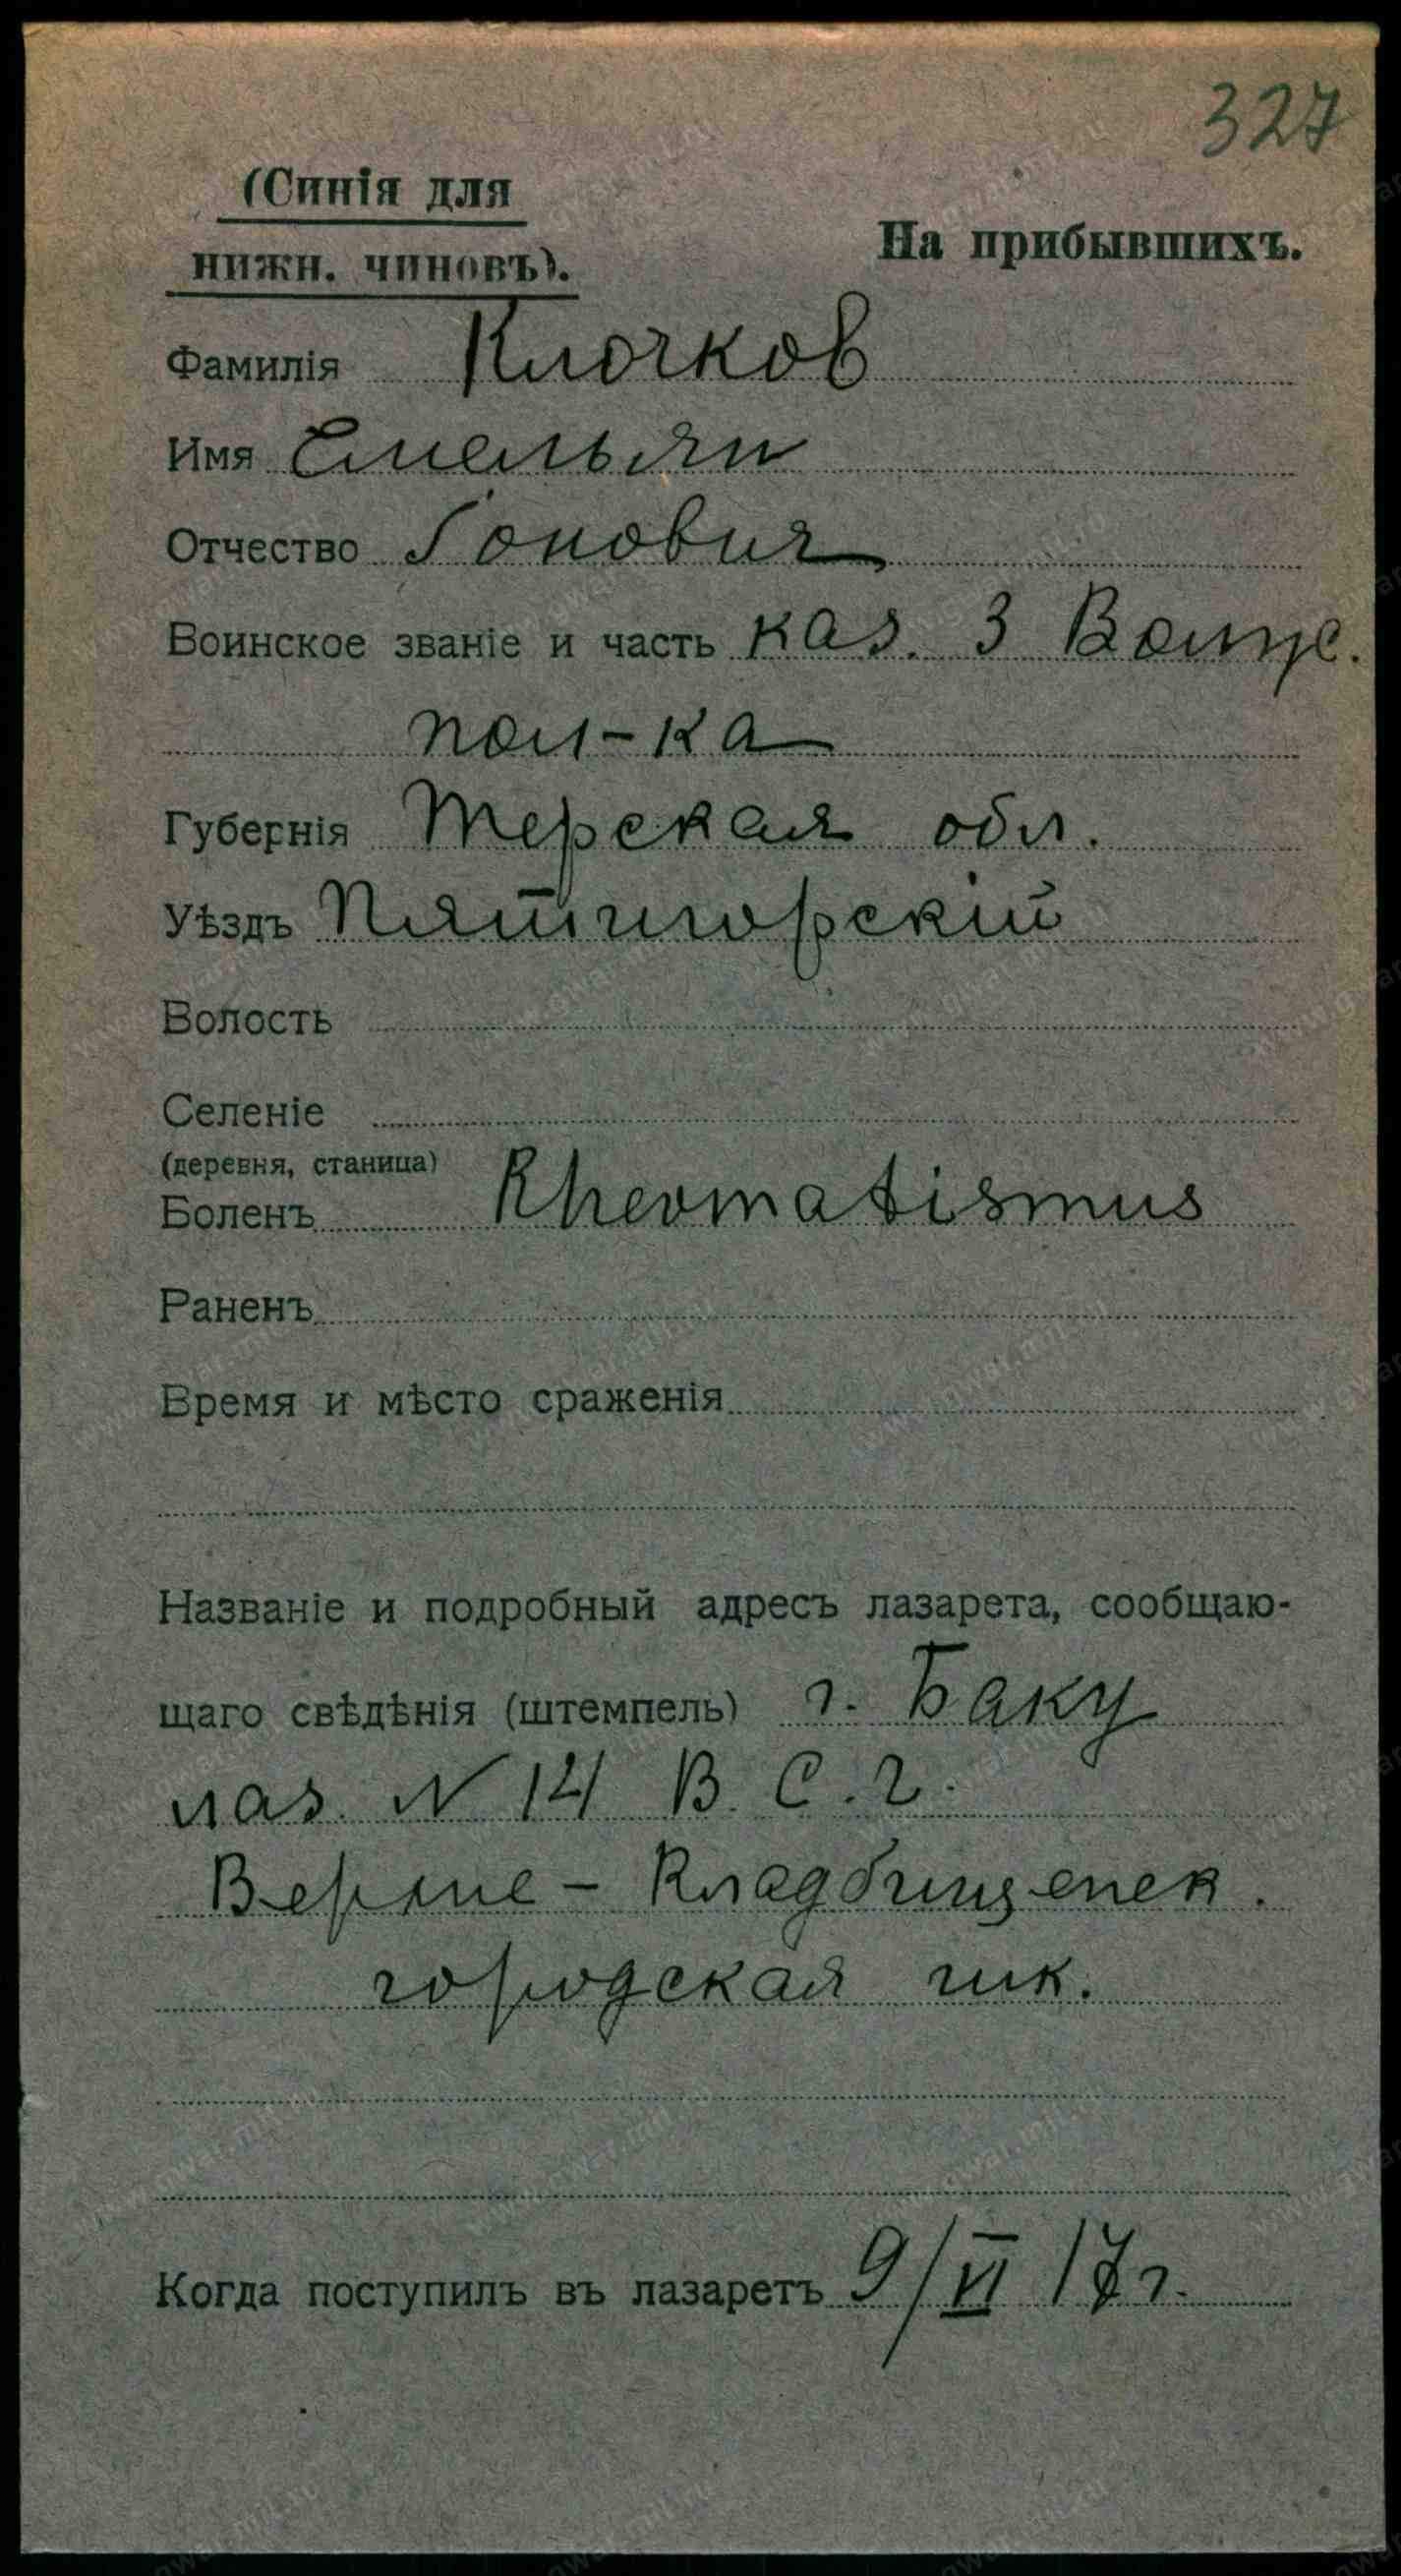 327
(Синія для
нижн. чиновъ).
На прибывшихъ.
Фамилія Клочков
Имя Емельян
Отчество Гонович
Воинское званіе и часть каз. 3 Волгс.
пол-ка
Губернія Терская обл.
Уѣздъ Пятигорскій
Волость
Селеніе
(деревня, станица)
Боленъ Rhevmatismus
Раненъ
Время и мѣсто сраженія
Названіе и подробный адресъ лазарета, сообщаю-
щаго свѣдѣнія (штемпель) г. Баку
лаз. N 14 В. С. г.
Верхне - Кладбищенск.
городская шк.
Когда поступилъ въ лазаретъ 9/VI 17 г.